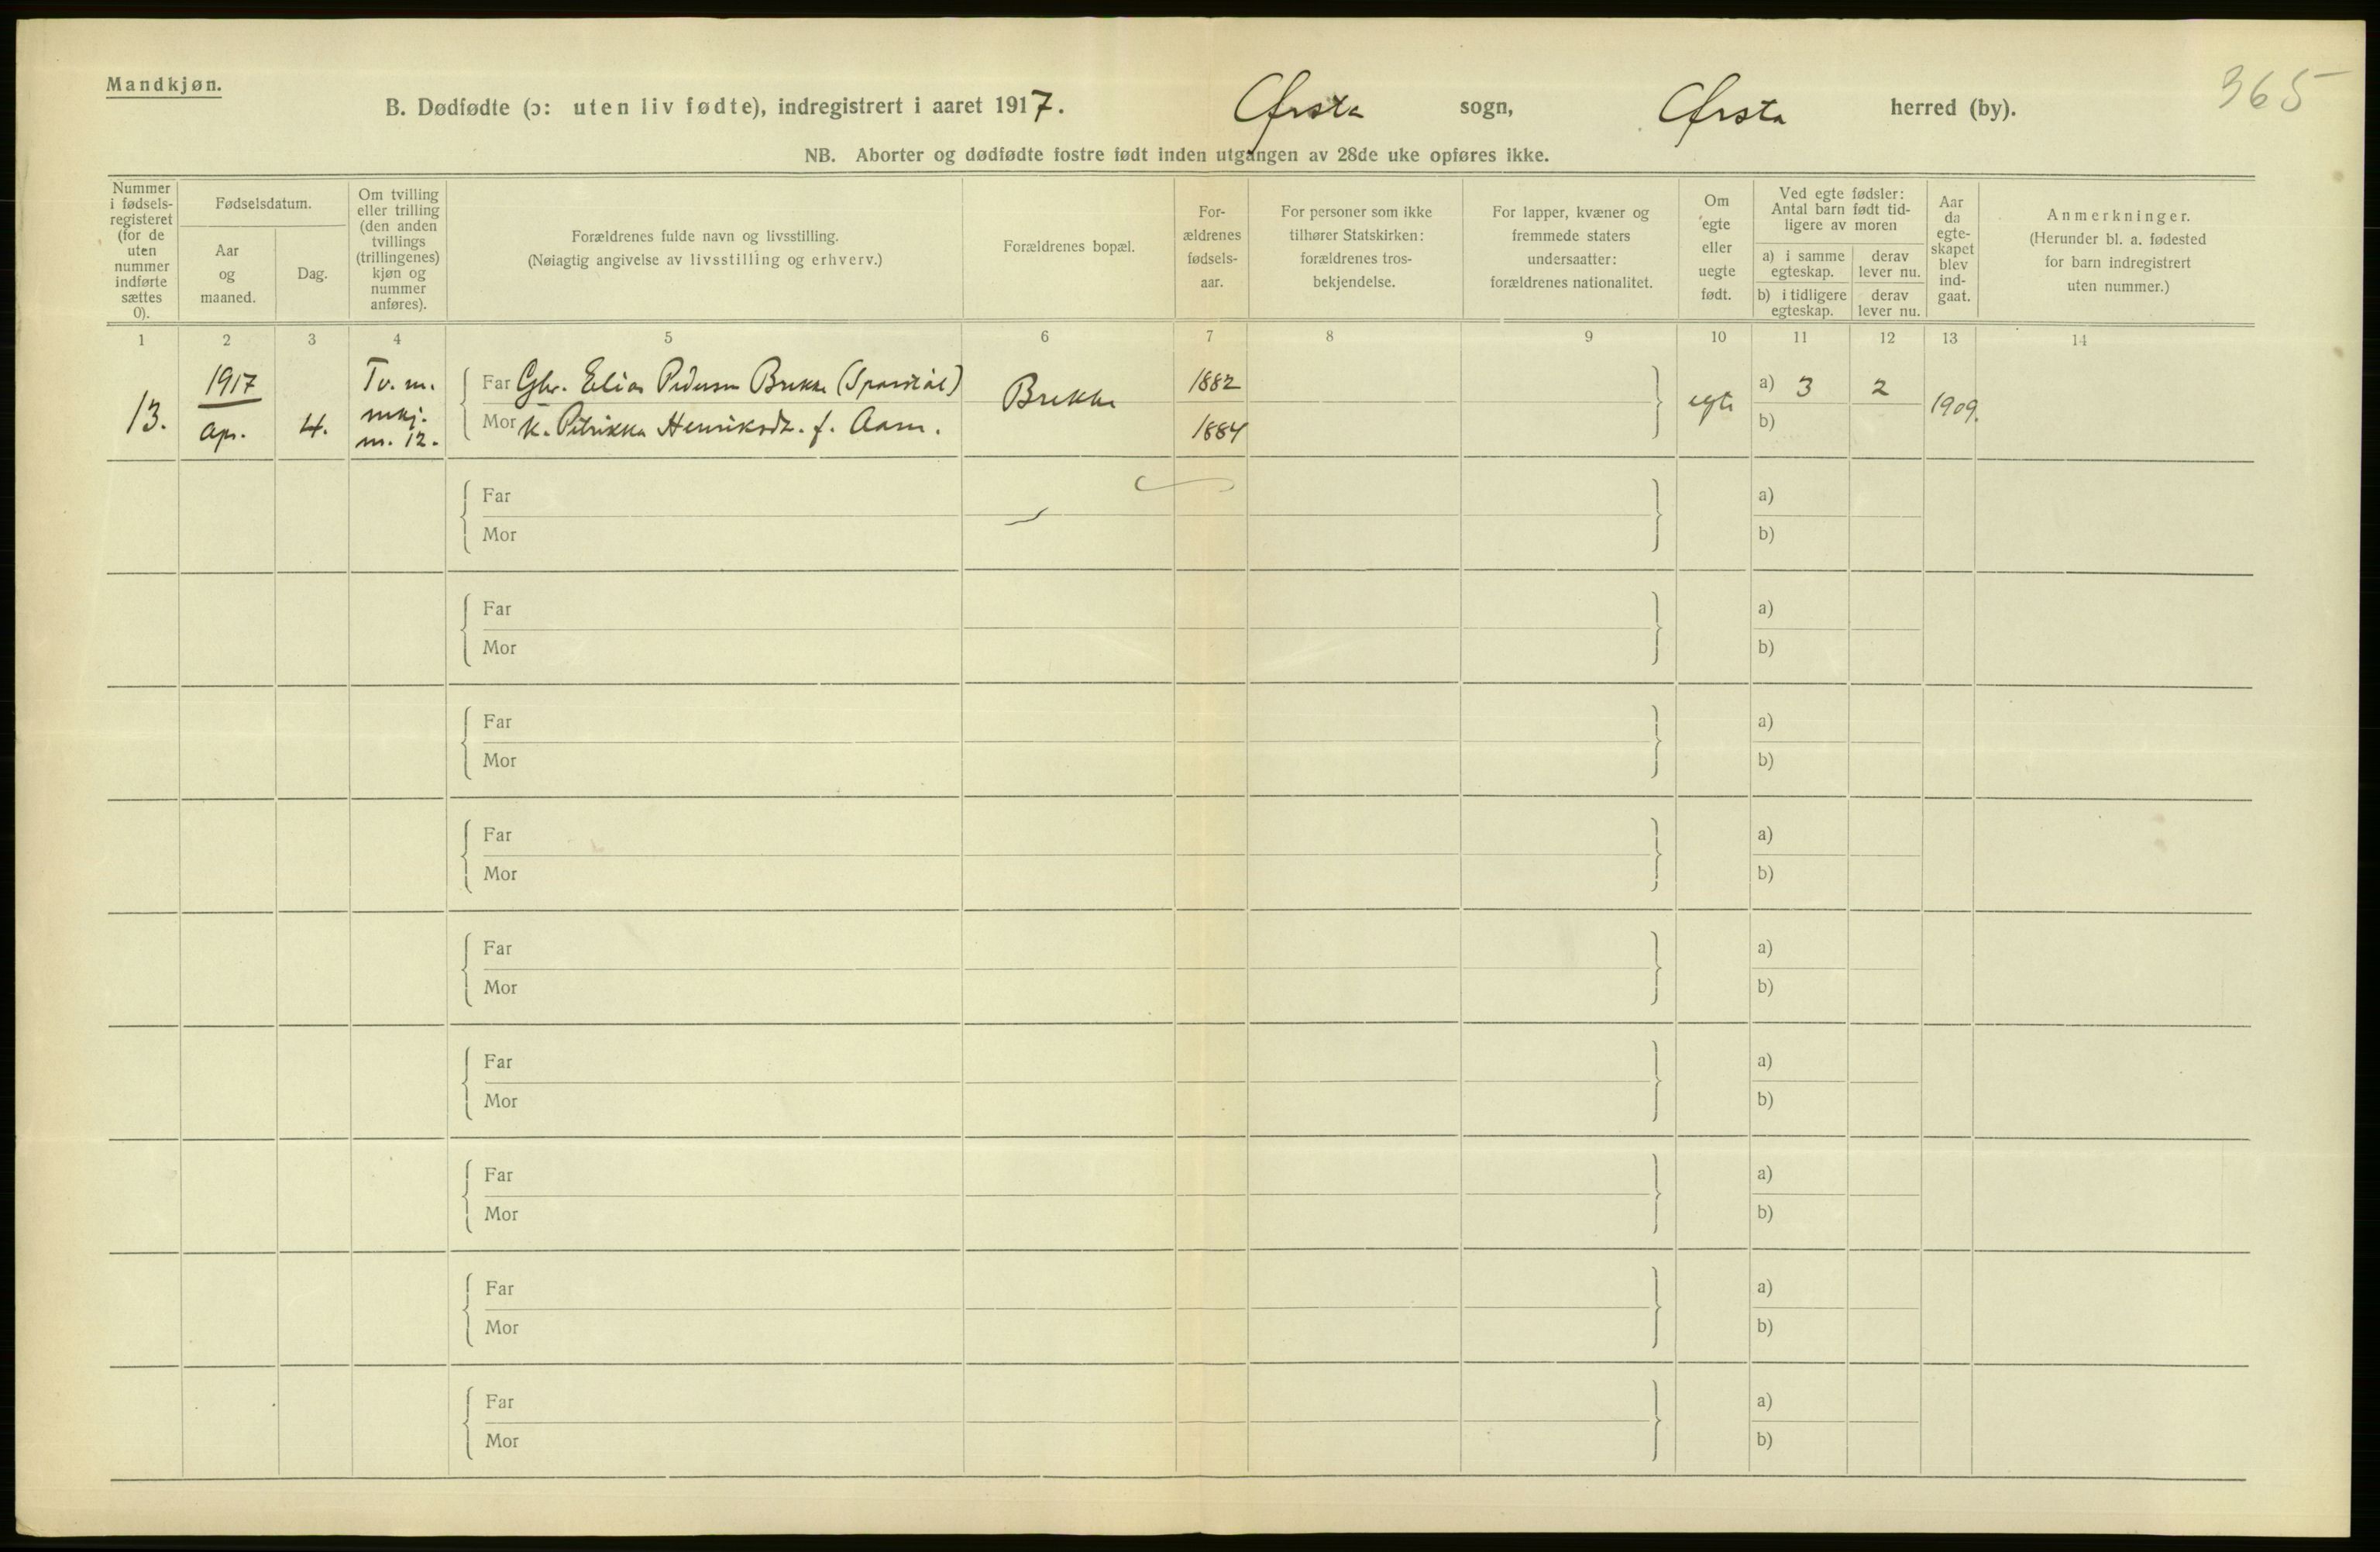 Mandkjøn.
365
B. Dødfødte (ɔ: uten liv fødte), indregistrert i aaret 1917. Ørsta sogn, Ørsta herred (by).
NB. Aborter og dødfødte fostre født inden utgangen av 28de uke opføres ikke.
Nummer
i fødsels-
registeret
(for de
uten
nummer
indførte
sættes
0).
Fødselsdatum.
Aar
og
maaned.
Dag.
Om tvilling
eller trilling
(den anden
tvillings
(trillingenes)
kjøn og
nummer
anføres).
Forældrenes fulde navn og livsstilling.
(Nøiagtig angivelse av livsstilling og erhverv.)
Forældrenes bopæl.
For-
ældrenes
fødsels-
aar.
For personer som ikke
tilhører Statskirken:
forældrenes tros-
bekjendelse.
For lapper, kvæner og
fremmede staters
undersaatter:
forældrenes nationalitet.
Om
egte
eller
uegte
født.
Ved egte fødsler:
Antal barn født tid-
ligere av moren
a) i samme
egteskap.
derav
lever nu.
b) i tidligere
egteskap.
derav
lever nu.
Aar
da
egte-
skapet
blev
ind-
gaat.
Anmerkninger.
(Herunder bl. a. fødested
for barn indregistrert
uten nummer.)
1 2 3 4 5 6 7 8 9 10 11 12 13 14
13.
1917
apr.
4.
Tv. m.
mkj.
n. 12.
Far Gbr. Elias Pedersen Brekke
Mor K. Petrikka Henriksdt. f. Aam.
Brekke
1882
1884
egte
a) 3 2
b)
1909.
Far a)
Mor b)
Far a)
Mor b)
Far a)
Mor b)
Far a)
Mor b)
Far a)
Mor b)
Far a)
Mor b)
Far a)
Mor b)
Far a)
Mor b)
Far a)
Mor b)